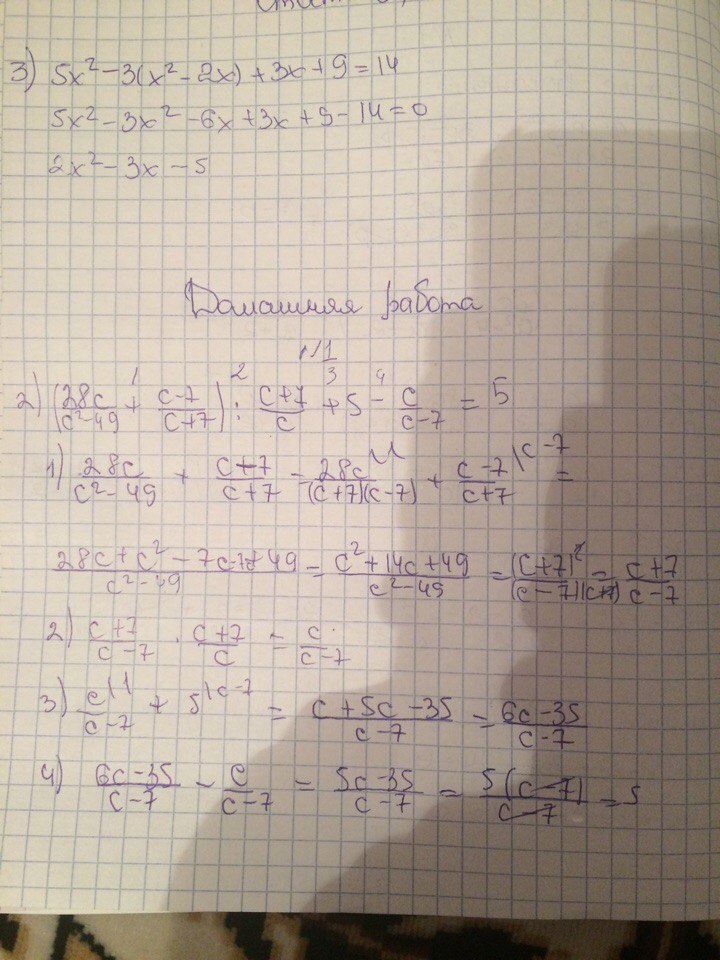 3) 5x² - 3(x² - 2x) + 3x + 9 = 14
5x² - 3x² - 6x + 3x + 9 - 14 = 0
2x² - 3x - 5
Домашняя работа
N1
1 2 3 4
2) (28c/(c² - 49) + (c - 7)/(c + 7)) : (c + 7)/c + 5 - c/(c - 7) = 5
1) 28c/(c² - 49) + (c - 7)/(c + 7) = 28c/((c + 7)(c - 7)) + (c - 7)/(c + 7) |c - 7 =
(28c + c² - 7c - 7c + 49)/(c² - 49) = (c² + 14c + 49)/(c² - 49) = (c + 7)²/((c - 7)(c + 7)) = (c + 7)/(c - 7)
2) (c + 7)/(c - 7) · (c + 7)/c = c/(c - 7)
3) c/(c - 7) |1 + 5 |c - 7 = (c + 5c - 35)/(c - 7) = (6c - 35)/(c - 7)
4) (6c - 35)/(c - 7) - c/(c - 7) = (5c - 35)/(c - 7) = 5(c - 7)/(c - 7) = 5